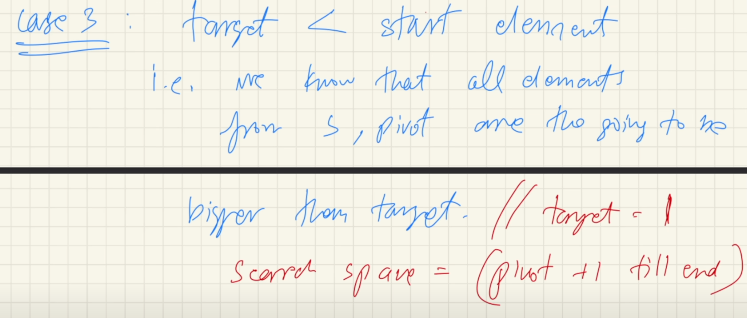 case 3 : target < start element
i.e. we know that all elements
from s, pivot are the going to be
bigger than target. // target = 1
search space = (pivot +1 till end)